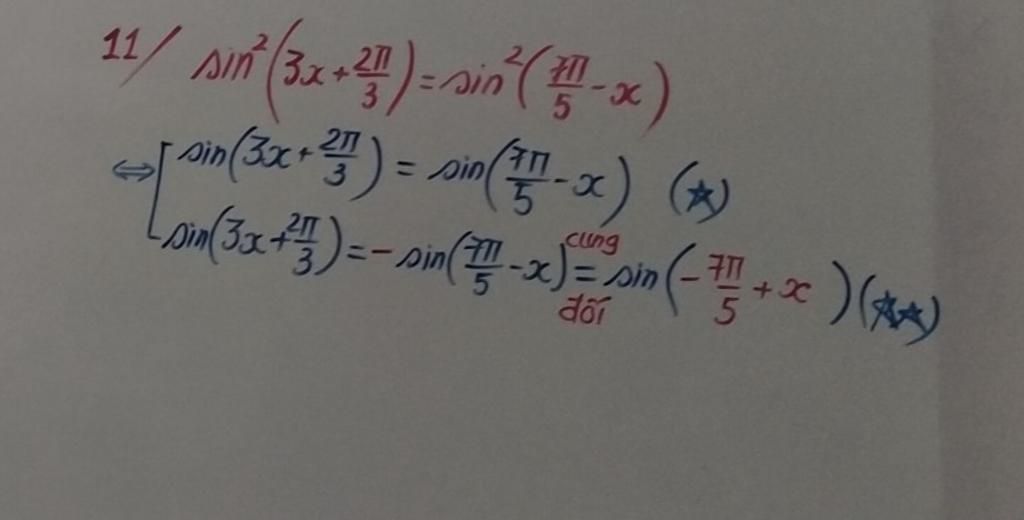 11/ sin²(3x+2π/3)=sin²(7π/5-x)
⇔[sin(3x+2π/3)=sin(7π/5-x) (☆)
sin(3x+2π/3)=-sin(7π/5-x) cung đối = sin(-7π/5+x) (☆☆)